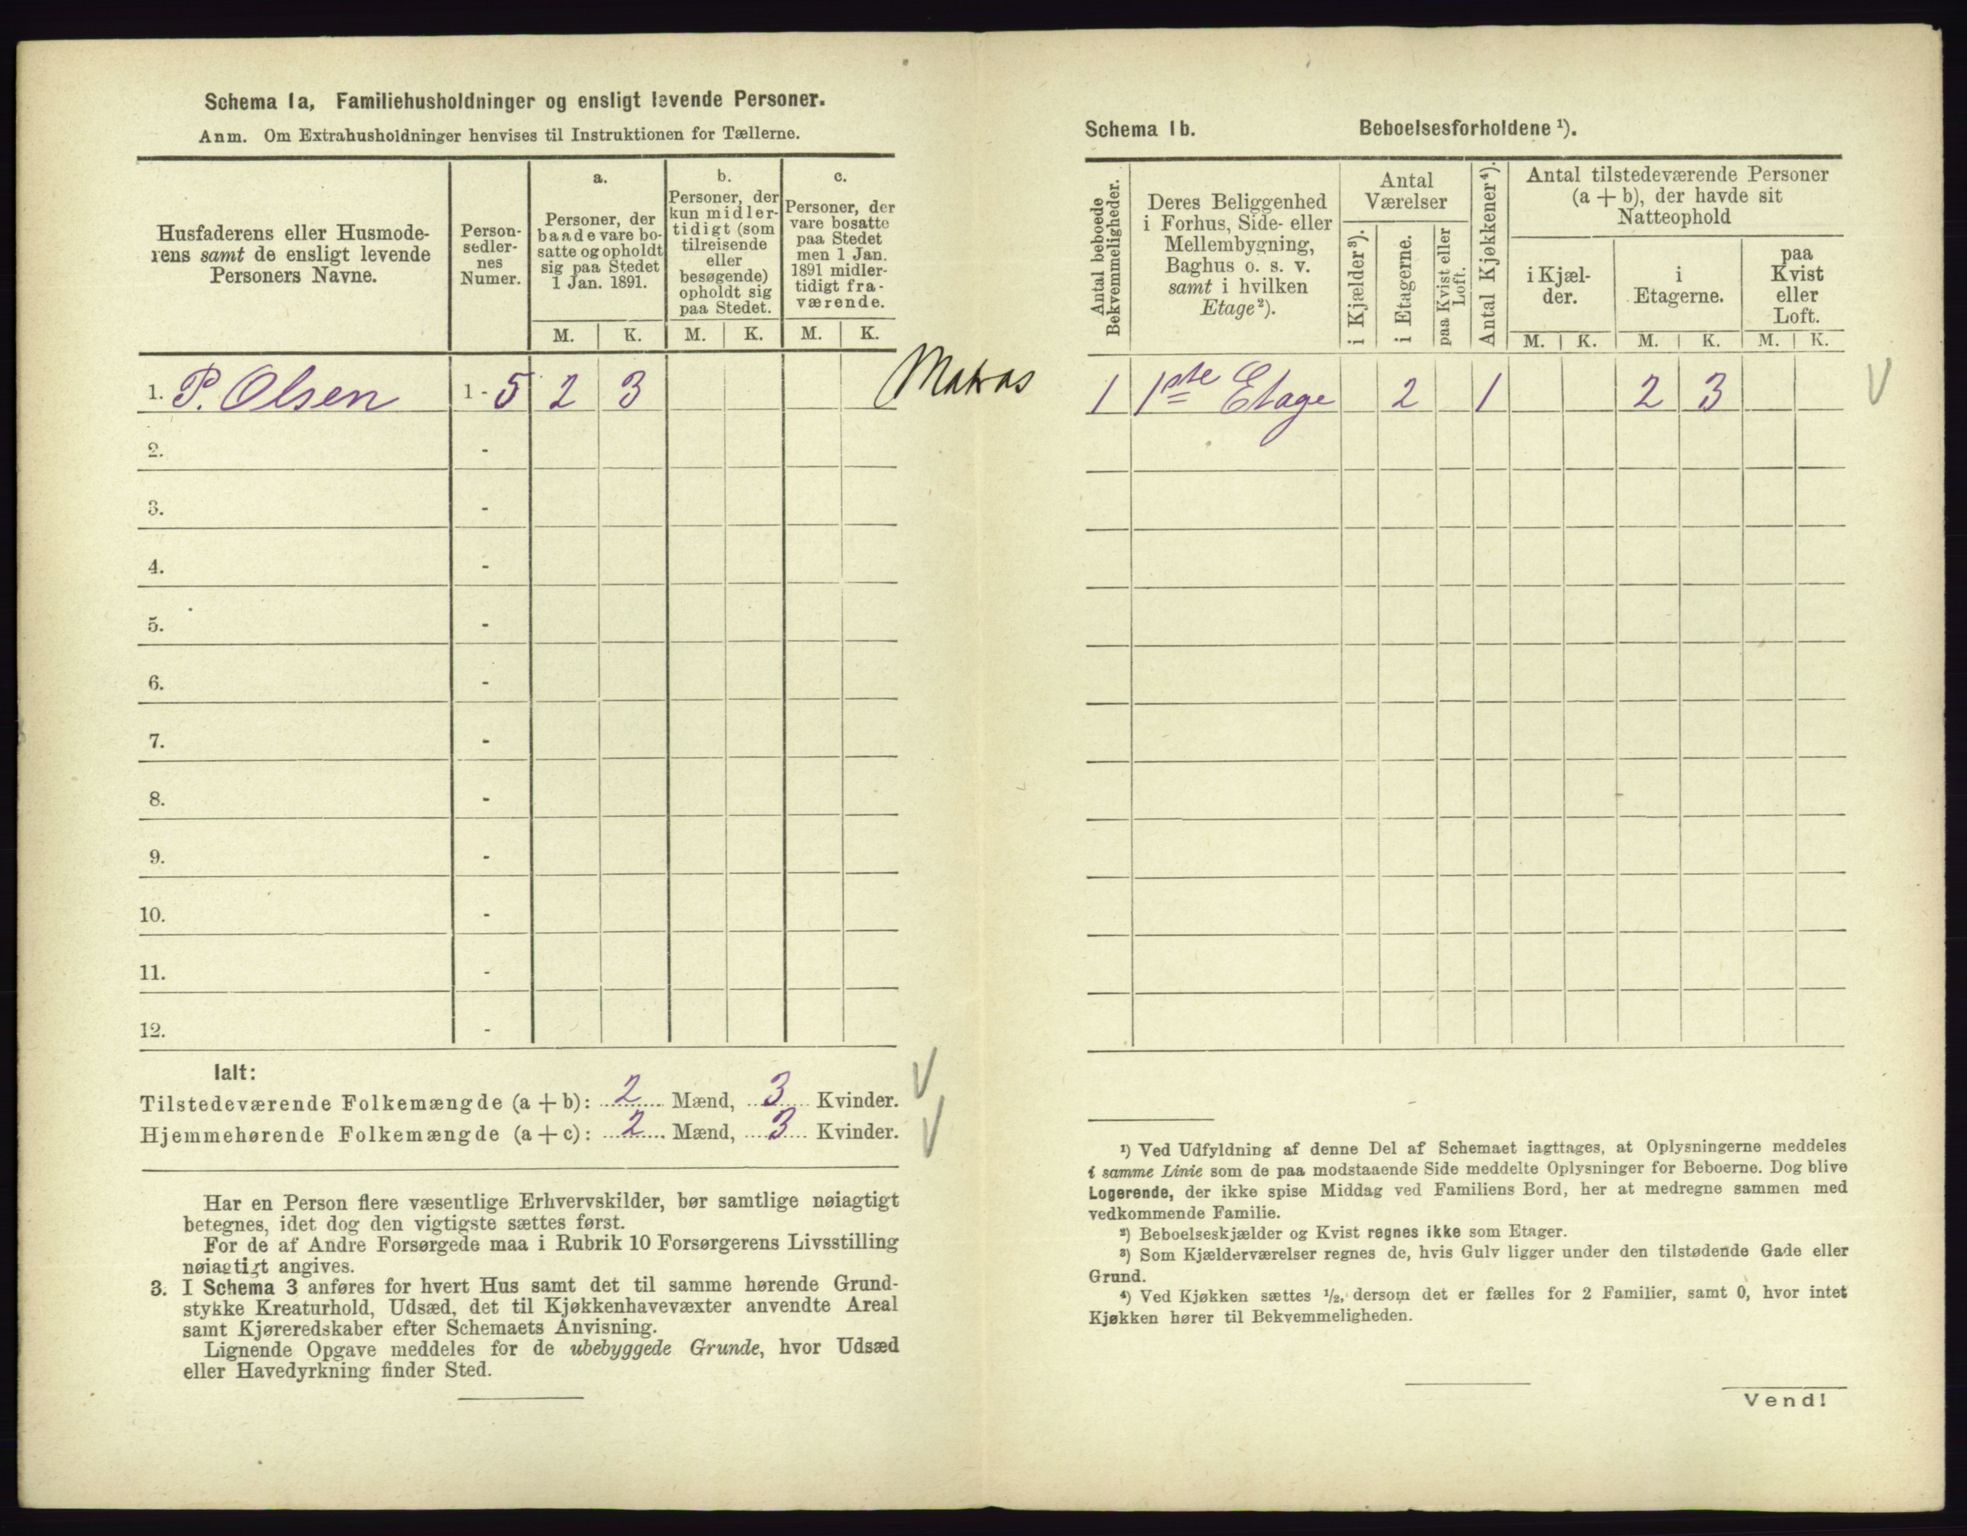 Schema 1a, Familiehusholdninger og ensligt levende Personer.
Anm. Om Extrahusholdninger henvises til Instruktionen for Tællerne.
Husfaderens eller Husmode-
rens samt de ensligt levende
Personers Navne.
Person-
sedler-
nes
Numer.
a.
Personer, der
baade vare bo-
satte og opholdt
sig paa Stedet
1 Jan. 1891.
b.
Personer, der
kun midler-
tidigt (som
tilreisende
eller
besøgende)
opholdt sig
paa Stedet.
c.
Personer, der
vare bosatte
paa Stedet
men 1 Jan.
1891 midler-
tidigt fra-
værende.
M. K. M. K. M. K.
1. P. Olsen 1 - 5 2 3
2. -
3. -
4. -
5. -
6. -
7. -
8. -
9. -
10. -
11. -
12. -
Ialt:
Tilstedeværende Folkemængde (a + b): 2 Mænd, 3 Kvinder.
Hjemmehørende Folkemængde (a + c): 2 Mænd, 3 Kvinder.
Har en Person flere væsentlige Erhvervskilder, bør samtlige nøiagtigt
betegnes, idet dog den vigtigste sættes først.
For de af Andre Forsørgede maa i Rubrik 10 Forsørgerens Livsstilling
nøiagtigt angives.
3. I Schema 3 anføres for hvert Hus samt det til samme hørende Grund-
stykke Kreaturhold, Udsæd, det til Kjøkkenhavevæxter anvendte Areal
samt Kjøreredskaber efter Schemaets Anvisning.
Lignende Opgave meddeles for de ubebyggede Grunde, hvor Udsæd
eller Havedyrkning finder Sted.
Schema 1b. Beboelsesforholdene ¹).
Antal beboede
Bekvemmeligheder.
Deres Beliggenhed
i Forhus, Side- eller
Mellembygning,
Baghus o. s. v.
samt i hvilken
Etage²).
Antal
Værelser
i Kjælder³).
i Etagerne.
paa Kvist eller
Loft.
Antal Kjøkkener⁴).
Antal tilstedeværende Personer
(a + b), der havde sit
Natteophold
i Kjæl-
der.
i
Etagerne.
paa
Kvist
eller
Loft.
M. K. M. K. M. K.
1 1ste Etage 2 1 2 3
¹) Ved Udfyldning af denne Del af Schemaet iagttages, at Oplysningerne meddeles
i samme Linie som de paa modstaaende Side meddelte Oplysninger for Beboerne. Dog blive
Logerende, der ikke spise Middag ved Familiens Bord, her at medregne sammen med
vedkommende Familie.
²) Beboelseskjælder og Kvist regnes ikke som Etager.
³) Som Kjælderværelser regnes de, hvis Gulv ligger under den tilstødende Gade eller
Grund.
⁴) Ved Kjøkken sættes ½, dersom det er fælles for 2 Familier, samt 0, hvor intet
Kjøkken hører til Bekvemmeligheden.
Vend!